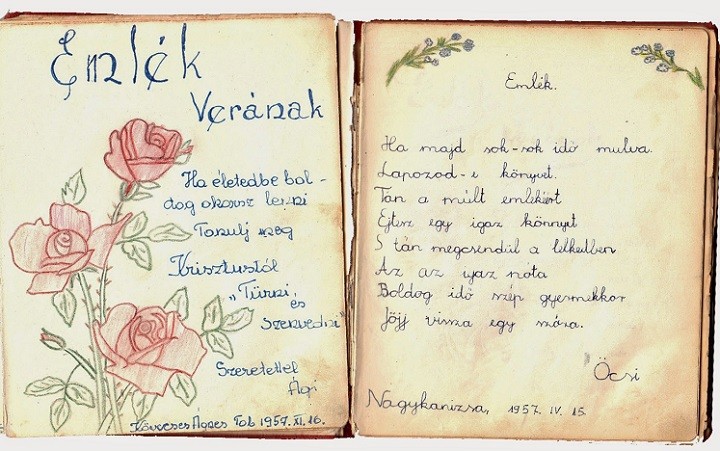 Emlék
Verának
Ha életedbe bol-
dog akarsz lenni
Tanulj meg
Krisztustól
"Tűrni, és
Szenvedni"
Szeretettel
Ági
Kövecses Ágnes Tob 1957. XI. 16.
Emlék.
Ha majd sok-sok idő mulva.
Lapozod-e könyvet.
Tán a múlt emlékiért
Ejtesz egy igaz könnyet
S tán megcsendül a lelkedben
Az az igaz nóta
Boldog idő szép gyermekkor
Jöjj vissza egy szóra.
Öcsi
Nagykanizsa, 1957. IV. 15.